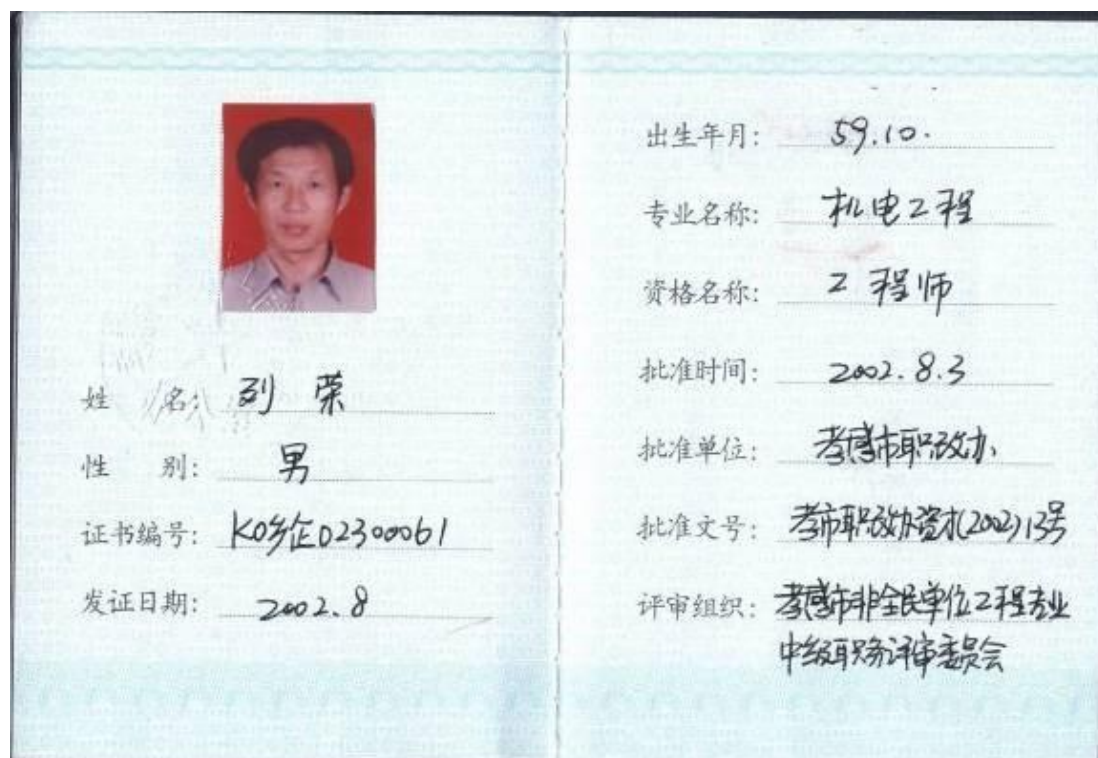 姓 名: 刘 荣
性 别: 男
证书编号: K0乡企02300061
发证日期: 2002.8
出生年月: 59.10.
专业名称: 机电工程
资格名称: 工程师
批准时间: 2002.8.3
批准单位: 孝感市职改办
批准文号: 孝市职改办资水(2002)13号
评审组织: 孝感市非全民单位工程专业
中级职务评审委员会